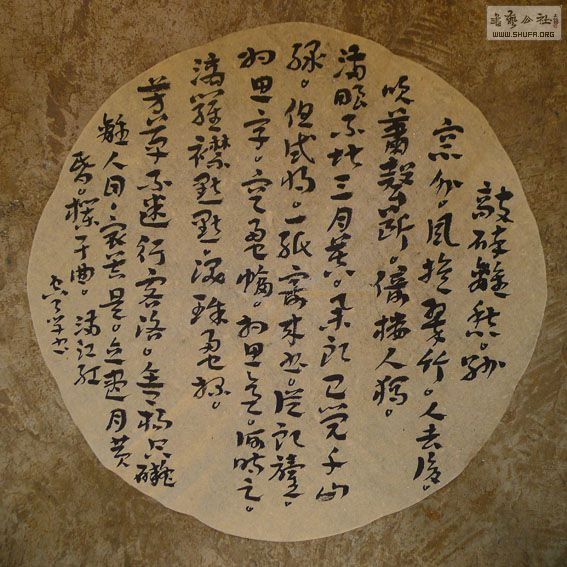 敲碎離愁。紗
窗外。風摇翠竹。人去後。
吹簫聲断。倚楼人獨。
滿眼不堪三月暮。舉頭已覺千山
緑。但試将。一紙寄来書。從頭讀。
相思字。空盈幅。相思意。何時足。
滴羅襟點點。淚珠盈掬。
芳草不迷行客路。垂楊只礙
離人目。最苦是。立盡月黄
昏。欄干曲。滿江紅
WWW.SHUFA.ORG